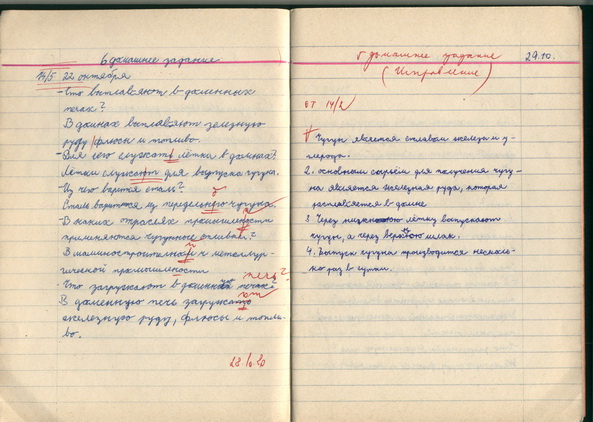 6 домашнее задание
14/5 22 октября
- Что выплавляют в доменных
печах?
В домнах выплавляют железную
руду, флюсы и топливо.
- Для чего служать лётки в домнах?
Лётки служают для выпуска чугуна.
- Из чего варится сталь?
Сталь варится из передельного чугуна.
- В каких отраслях промышленности
применяются чугунные отливки?
В машиностроительной и металлур-
гической промышленности
печь?
- Что загружают в доменной печа
ют
В доменную печь загружають
железную руду, флюсы и топли-
во.
28.10.80
5 домашнее задание
29.10.
(Исправление)
от 14/2
1 Чугун является сплавом железа и у-
глерода.
2. основным сырьём для получения чугу-
на является железная руда, которая
расплавляется в домне
3 Через нижнюю лётку выпускают
чугун, а через верхнюю шлак.
4. Выпуск чугуна производится несколь-
ко раз в сутки.